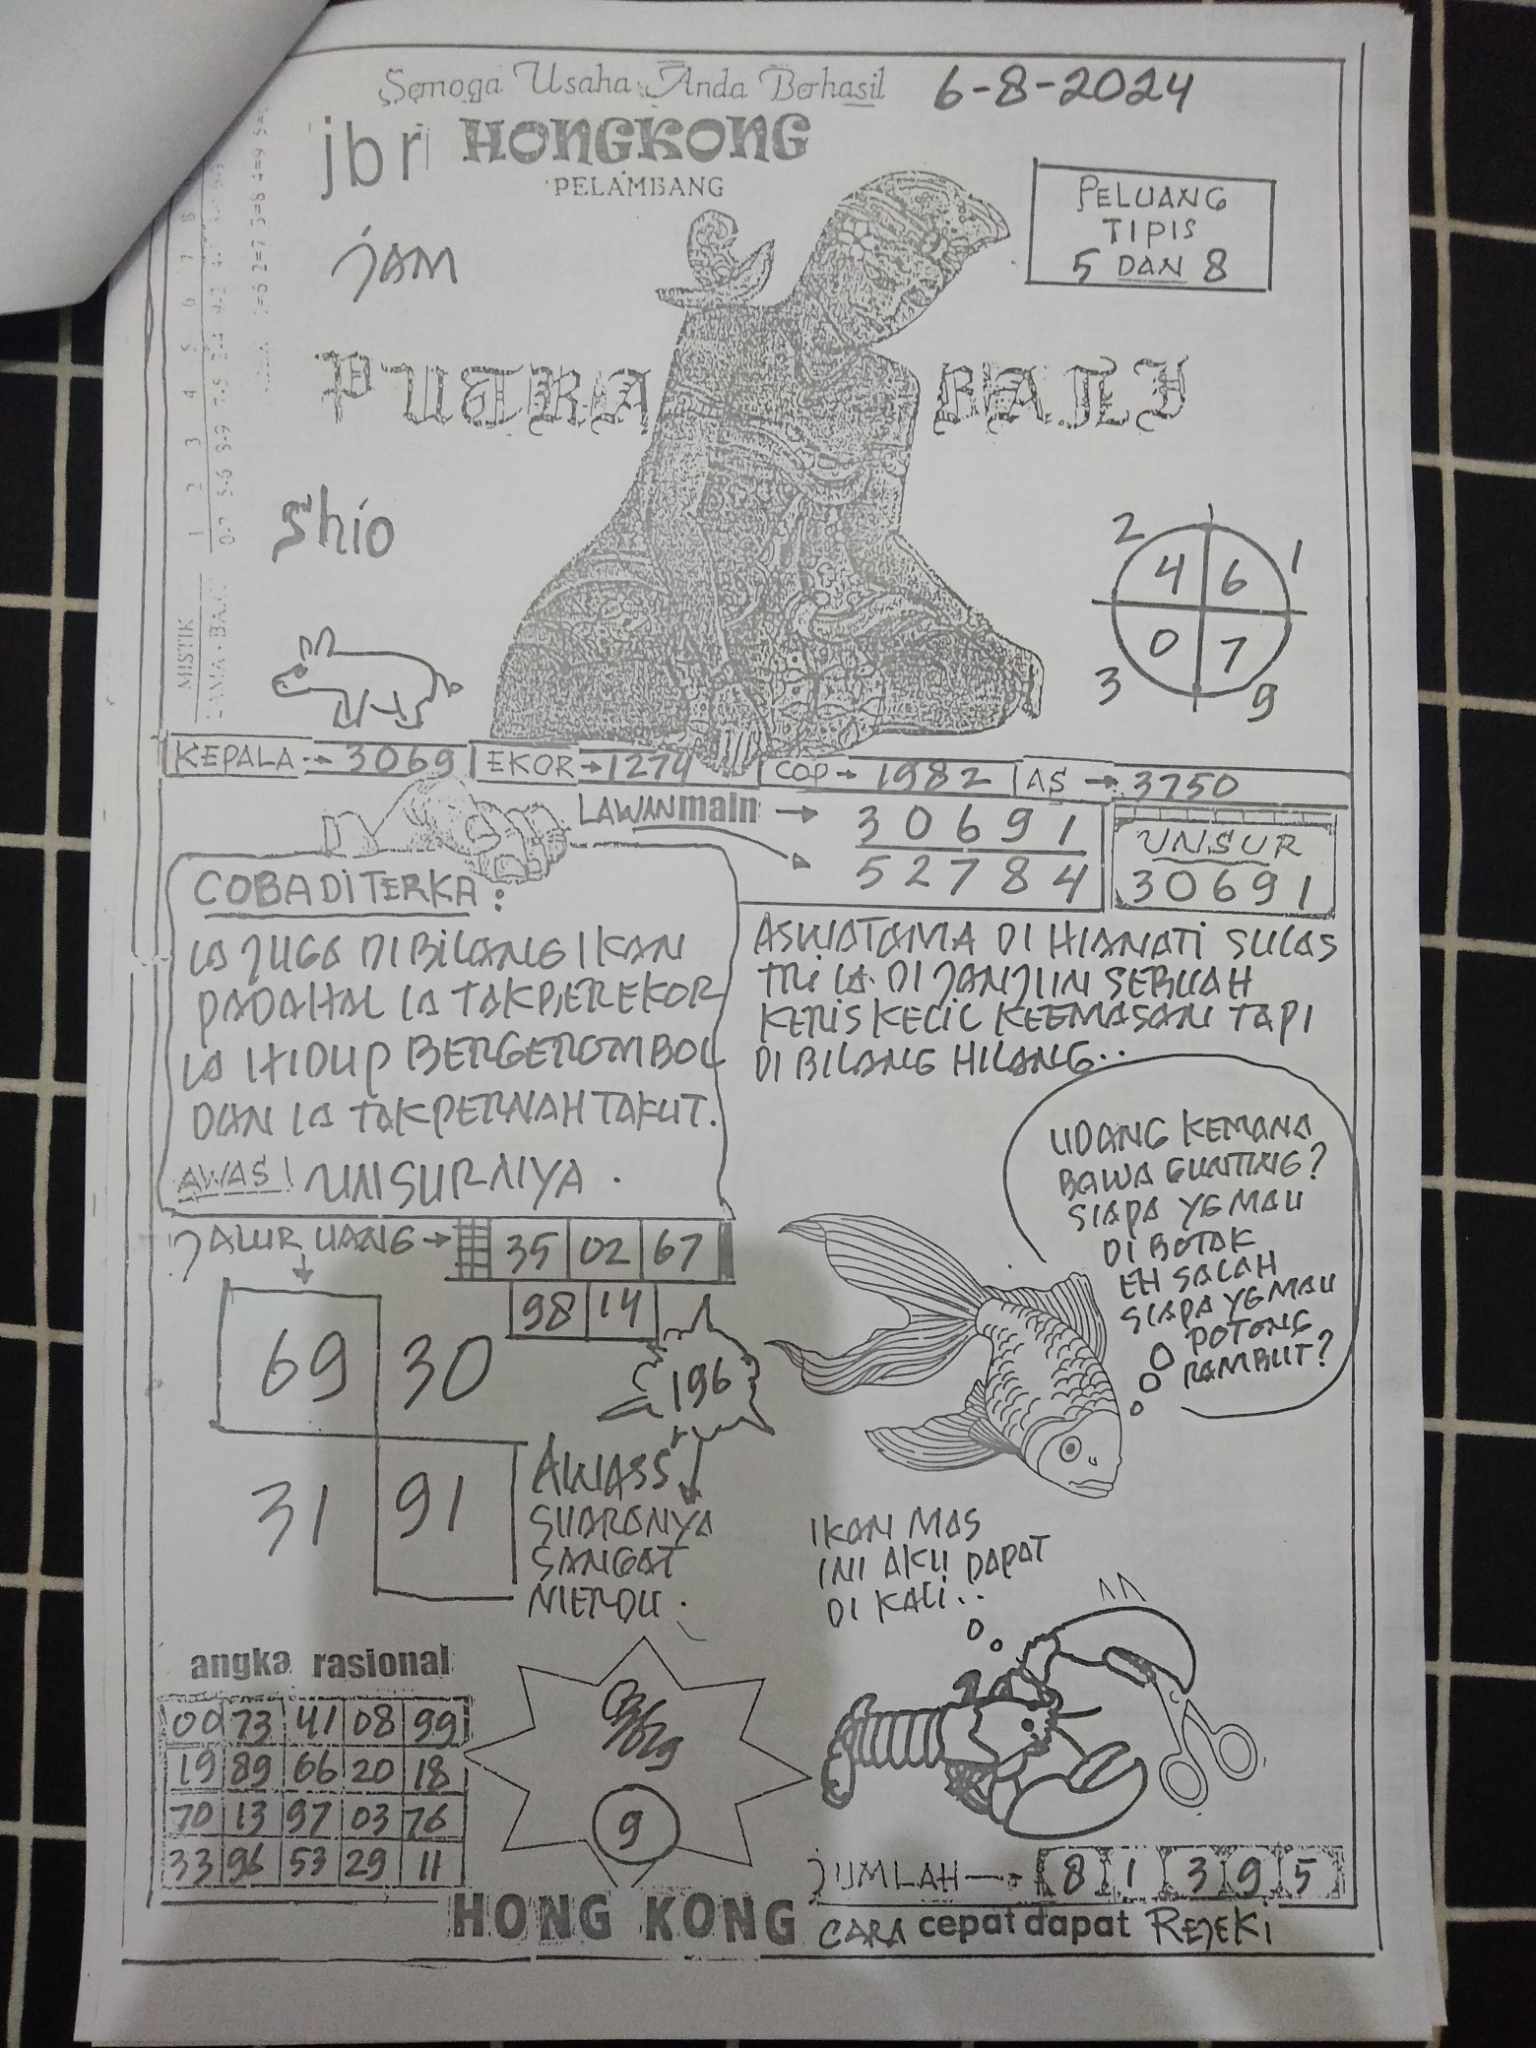 Semoga Usaha Anda Berhasil 6-8-2024
jbr HONGKONG
PELAMBANG
jAM
PELUANG
TIPIS
5 DAN 8
PUTRA BALI
Shio
2 1
4 6
0 7
3 9
MISTIK
1 2 3 4 5 6 7 8
KEPALA → 3069 EKOR → 1274 COP → 1982 AS → 3750
LAWAN main → 30691
52784
UNSUR
30691
COBA DI TERKA :
IA JUGA DI BILANG IKAN
PADAHAL IA TAK PEREKOR
IA HIDUP BERGEROMBOL
DAN IA TAK PERNAH TAKUT.
AWAS! UNSURNYA .
ASWATAMA DI HIANATI SULAS
TRI IA. DI JANJIIN SEBUAH
KERIS KECIL KEEMASAN TAPI
DI BILANG HILANG..
UDANG KEMANA
BAWA GUNTING?
SIAPA YG MAU
DI BOTAK
EH SALAH
SIAPA YG MAU
POTONG
RAMBUT?
JALUR UANG → 35 02 67
98 14
69 30
196
31 91
AWASS
SUARANYA
SANGAT
MERDU .
IKAN MAS
INI AKU DAPAT
DI KALI..
angka rasional
00 73 41 08 99
19 89 66 20 18
70 13 97 03 76
33 96 53 29 11
9
JUMLAH → 8 1 3 9 5
HONG KONG CARA cepat dapat REJEKI